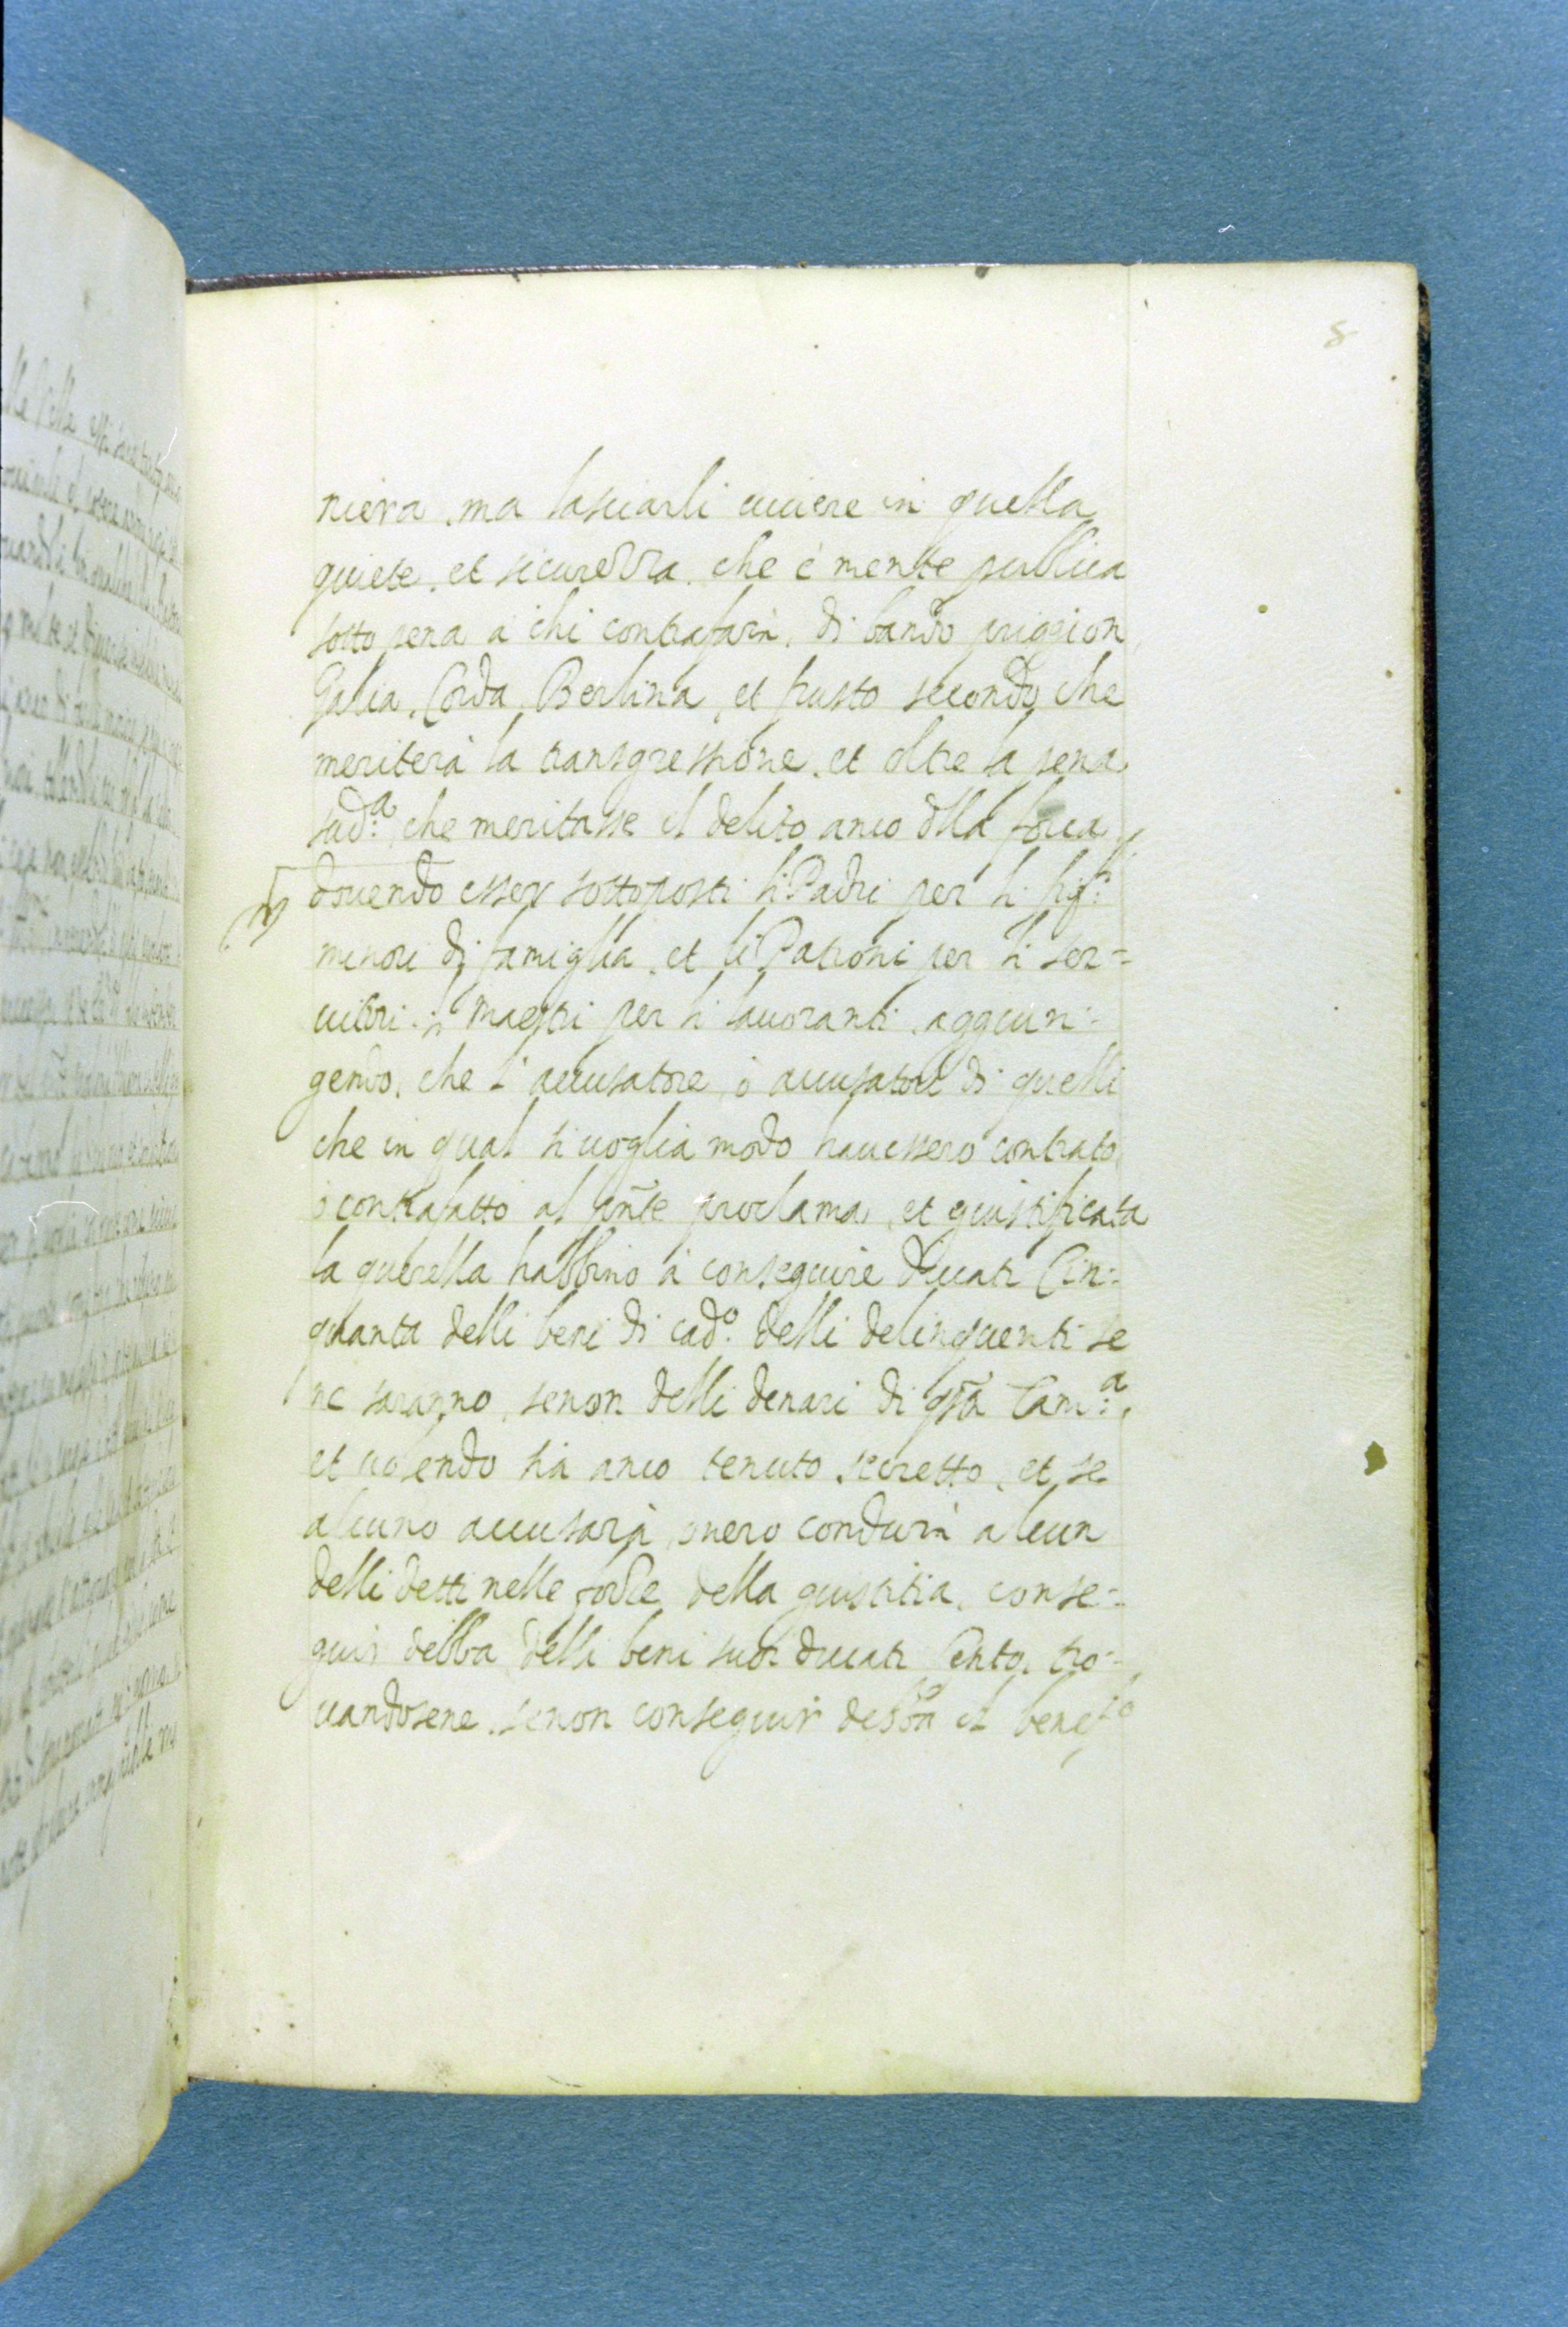 8
niera, ma lasciarli uiuere in quella
quiete, et sicurezza, che è mente publica
sotto pena a chi contrafarà, di bando priggion
Galia, Corda, Berlina, et frusto secondo che
meriterà la transgressione, et oltre la pena
sud.ᵃ che meritasse il delito anco dlla forca,
douendo esser sottoposti li Padri per li fig:ⁱ
minori di famiglia, et li Patroni per li ser=
uitori, li Maestri per li lauoranti, aggiun=
gendo, che l'accusatore, ò accusatori di quelli
che in qual si uoglia modo hauessero contrato,
ò contrafatto al pñte proclama, et giustificata
la querella habbino à conseguire Ducati Cin=
quanta delli beni di cad.º delli delinquenti se
ne saranno, senon delli denari di q̃ta Cam:ᵃ,
et uolendo sia anco tenuto secretto, et se
alcuno accusarà, ouero condurà alcun
delli detti nelle forze della giustitia, conse=
guir debba delli beni suoi ducati Cento, tro=
uandosene, senon conseguir debba il benef.º